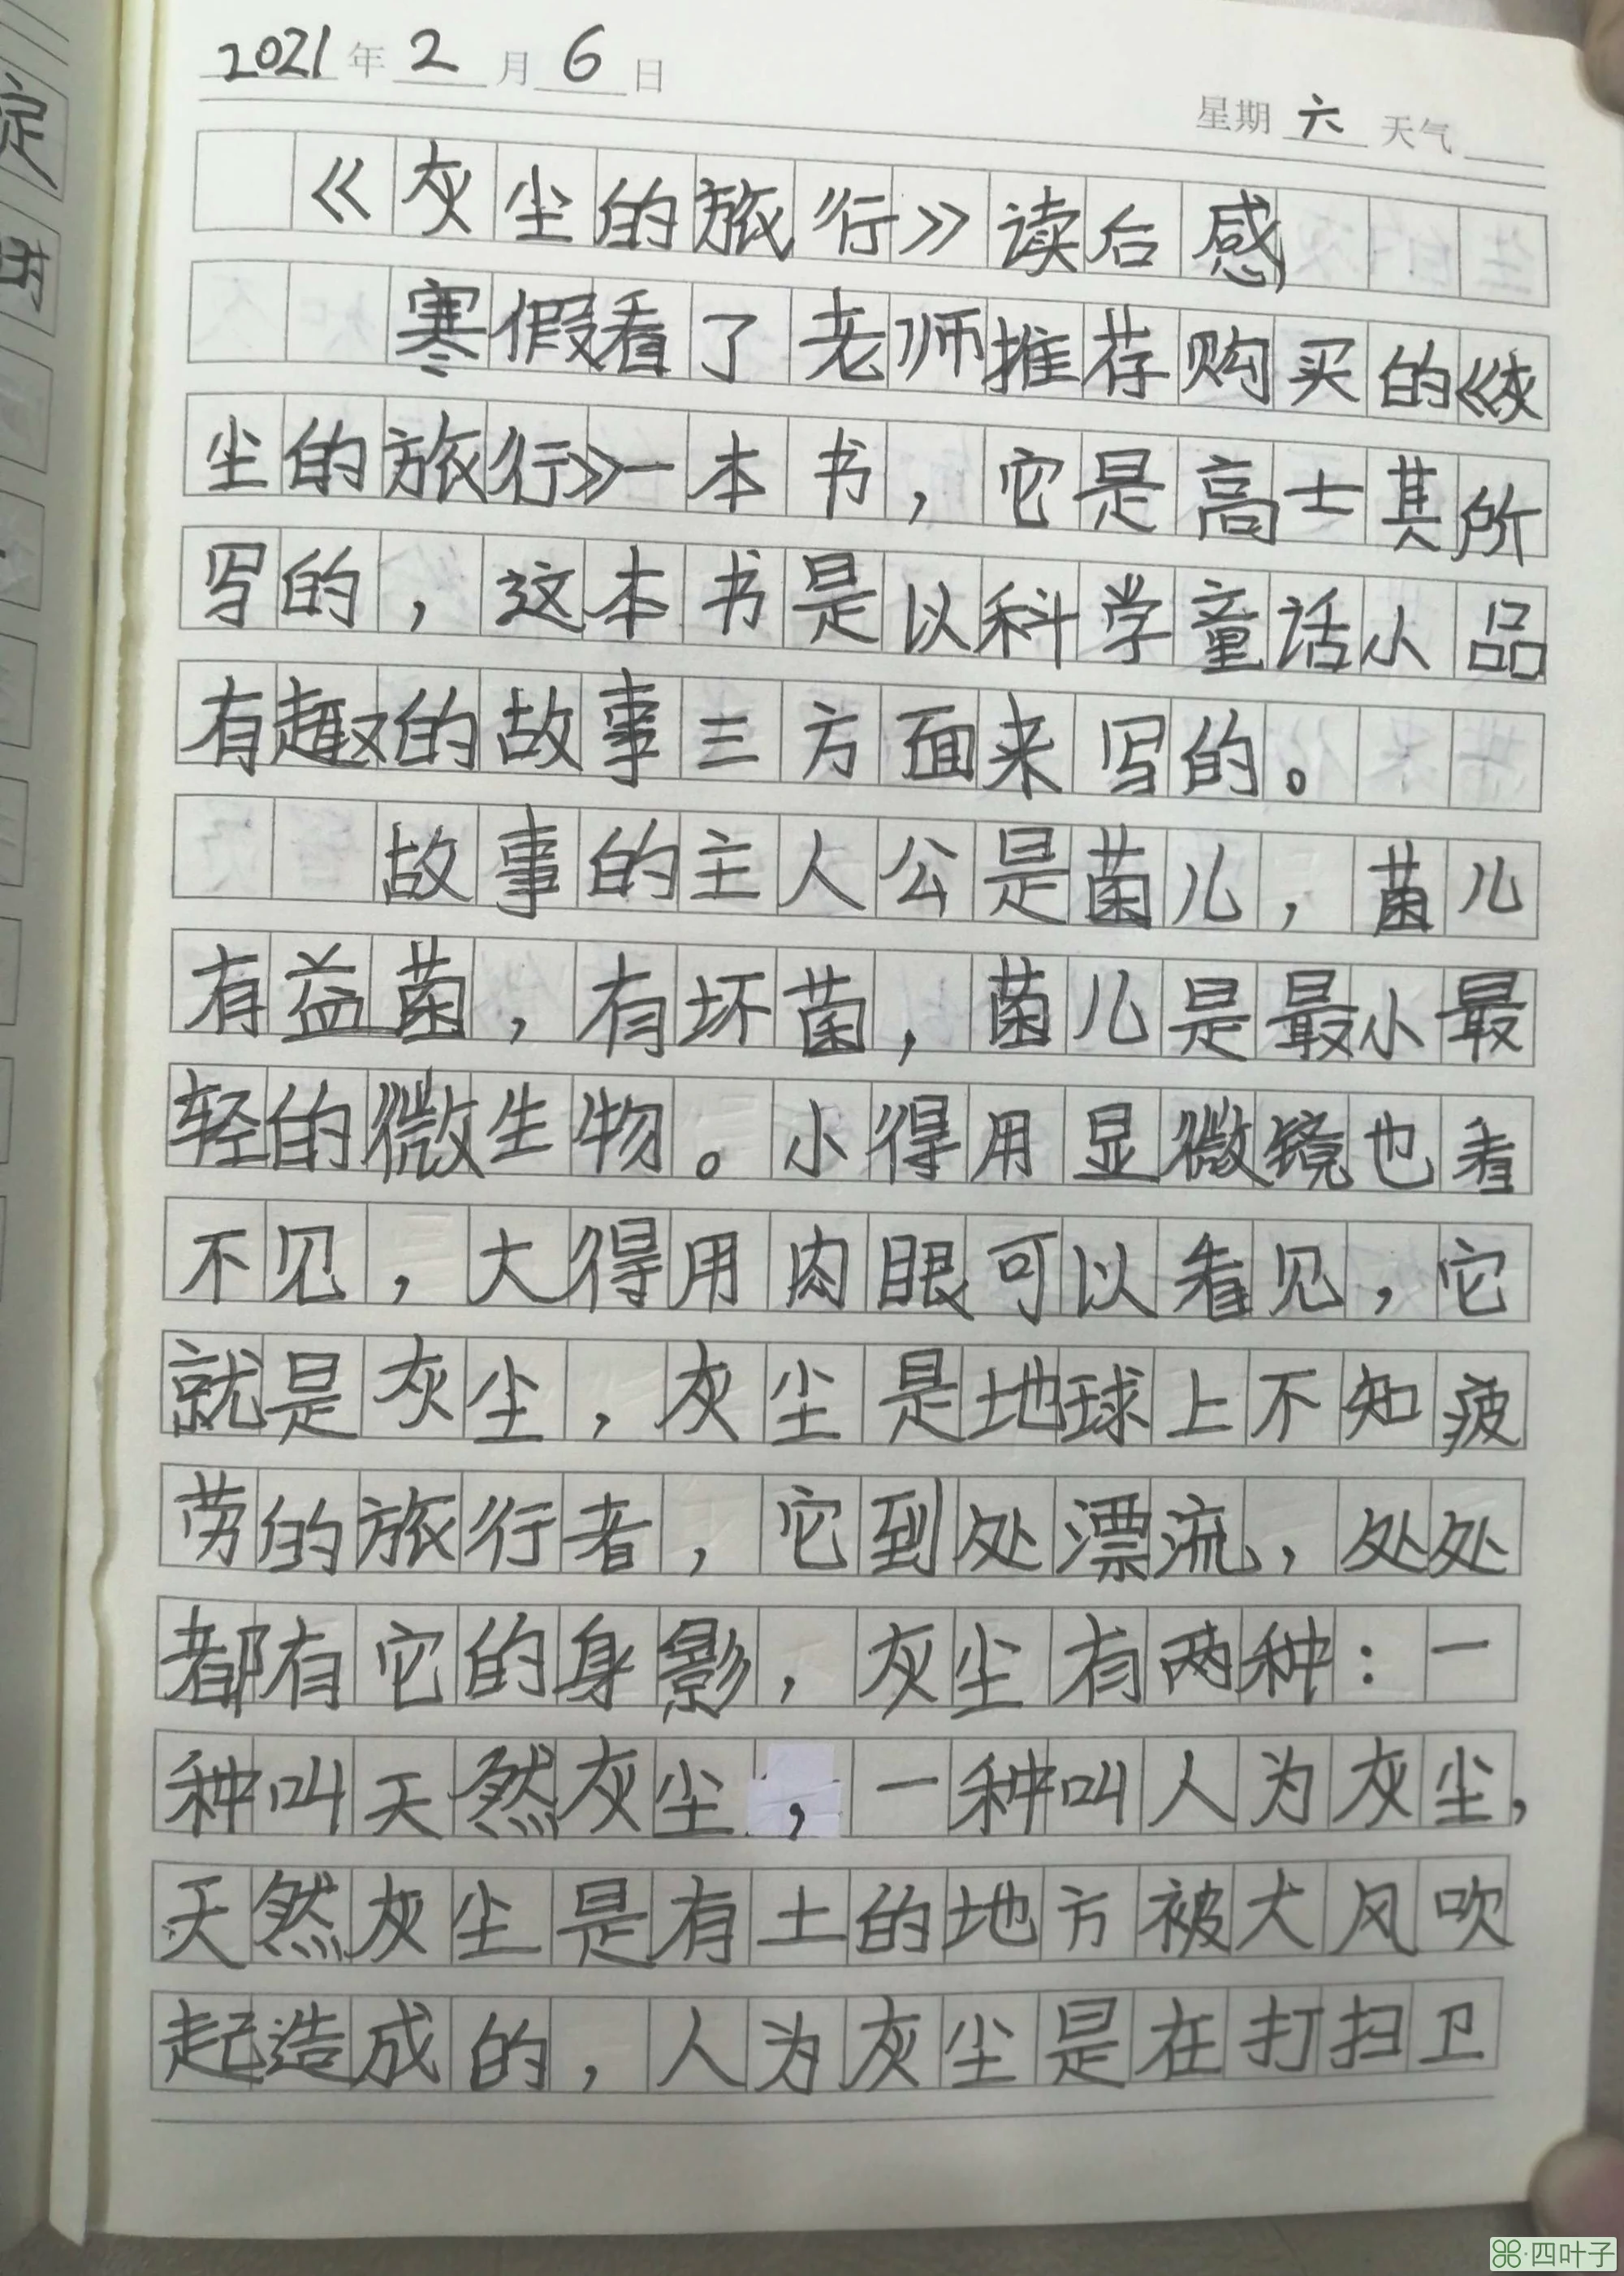 2021年2月6日
星期六天气
《灰尘的旅行》读后感
寒假看了老师推荐购买的《灰
尘的旅行》一本书，它是高士其所
写的，这本书是以科学童话小品
有趣的故事三方面来写的。
故事的主人公是菌儿，菌儿
有益菌，有坏菌，菌儿是最小最
轻的微生物。小得用显微镜也看
不见，大得用肉眼可以看见，它
就是灰尘，灰尘是地球上不知疲
劳的旅行者，它到处漂流，处处
都有它的身影，灰尘有两种：一
种叫天然灰尘，一种叫人为灰尘，
天然灰尘是有土的地方被大风吹
起造成的，人为灰尘是在打扫卫
四叶子